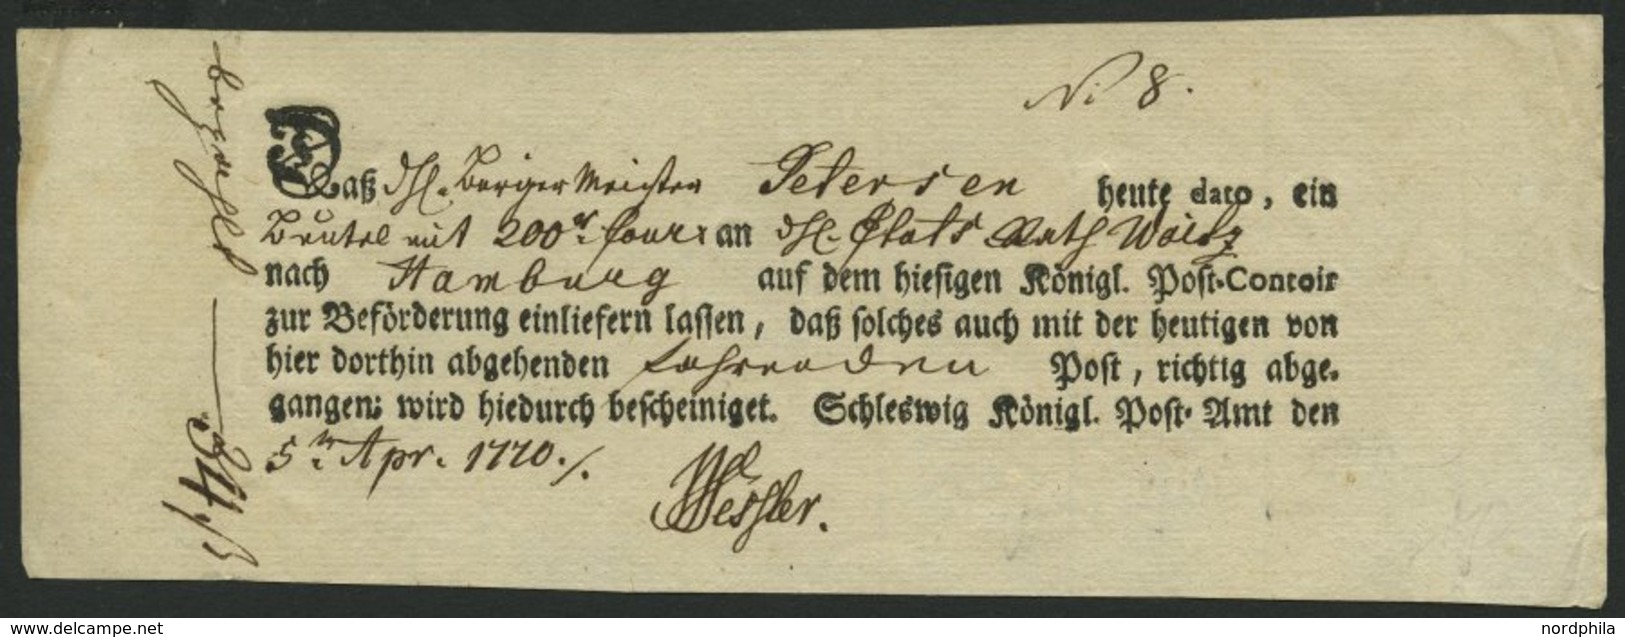 No 8.
Daß Hl. Bürger Meister Petersen heute dato, ein
Beutel mit 200 an Hl. Etats Rath
nach Hamburg auf dem hiesigen Königl. Post-Contoir
zur Beförderung einliefern lassen, daß solches auch mit der heutigen von
hier dorthin abgehenden fahrenden Post, richtig abge-
gangen: wird hiedurch bescheiniget. Schleswig Königl. Post-Amt den
5 Apr. 1770./.
Wessler.
bezahlt
www.delcampe.net
nordphila